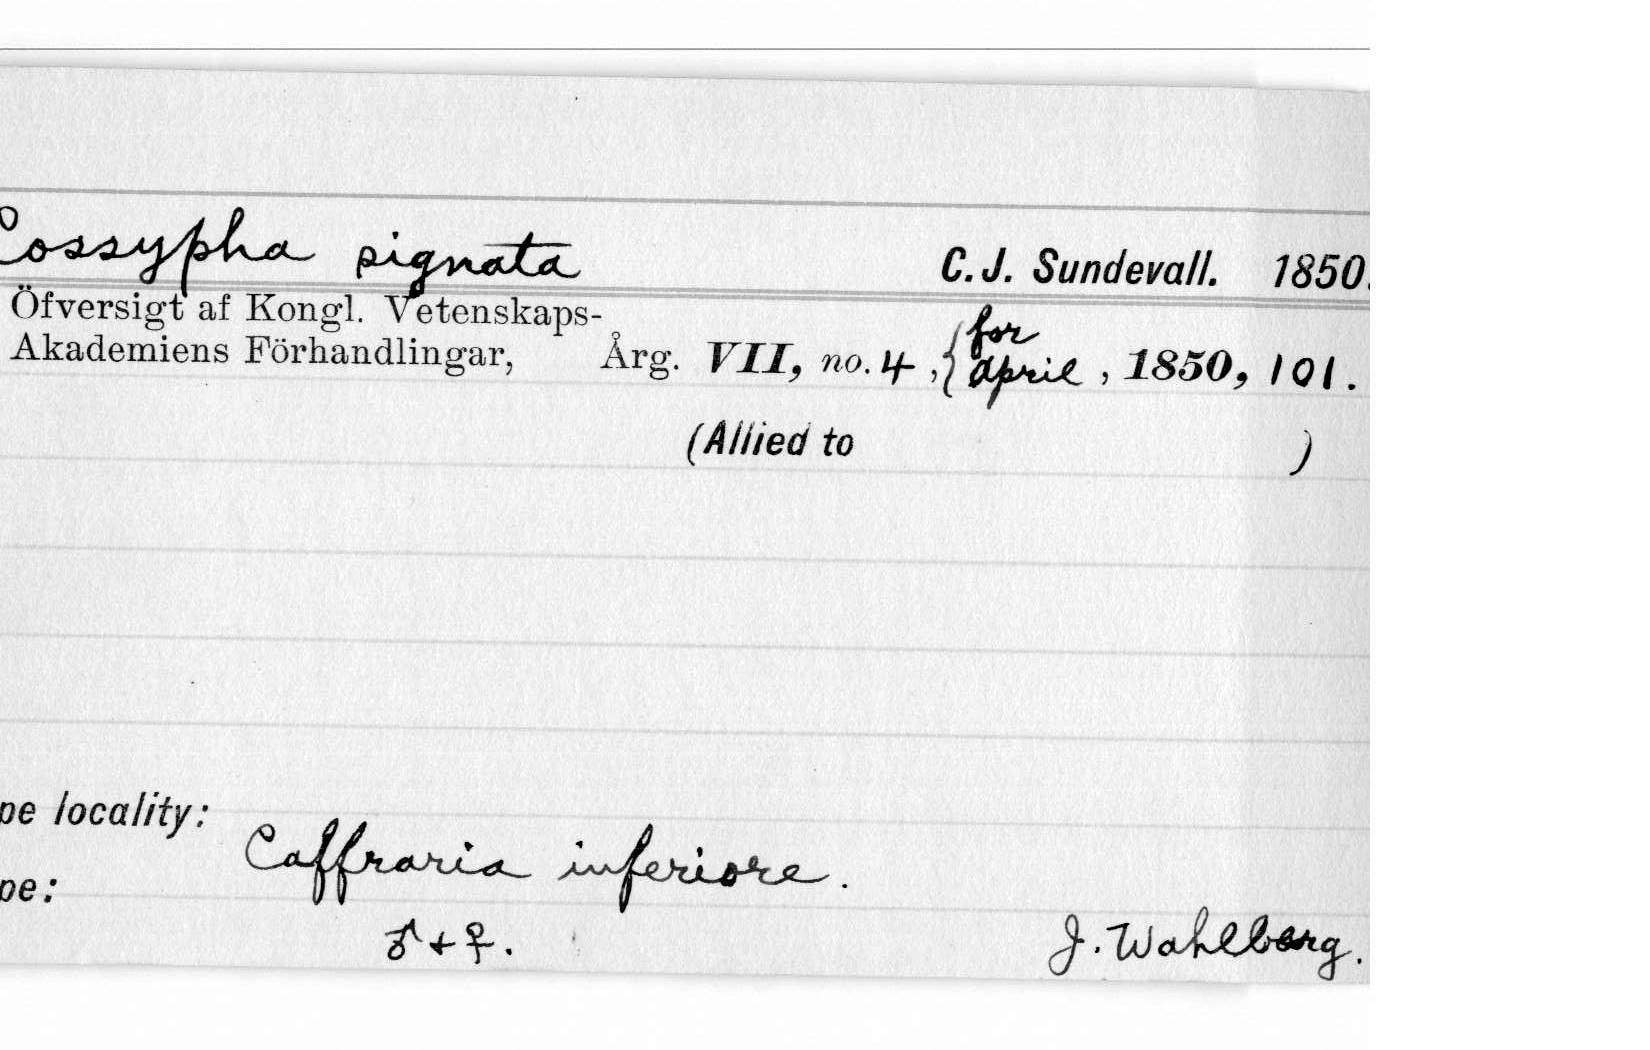 Cossypha signata C.J. Sundevall. 1850.
Öfversigt af Kongl. Vetenskaps-
Akademiens Förhandlingar, Årg. VII, no. 4, { for April, 1850, 101.
(Allied to )
pe locality:
Caffraria inferiore.
pe:
♂ + ♀. J. Wahlberg.